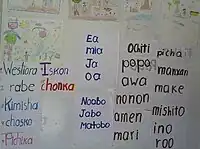 Westiora
rabe
Kimisha
chosko
Pichika
Iskon
chonka
Ea
mia
Ja
oa
Noobo
Jabo
Matobo
Ochiti
popo
awa
nonon
amen
mari
pichia
manxan
make
mishito
ino
roo